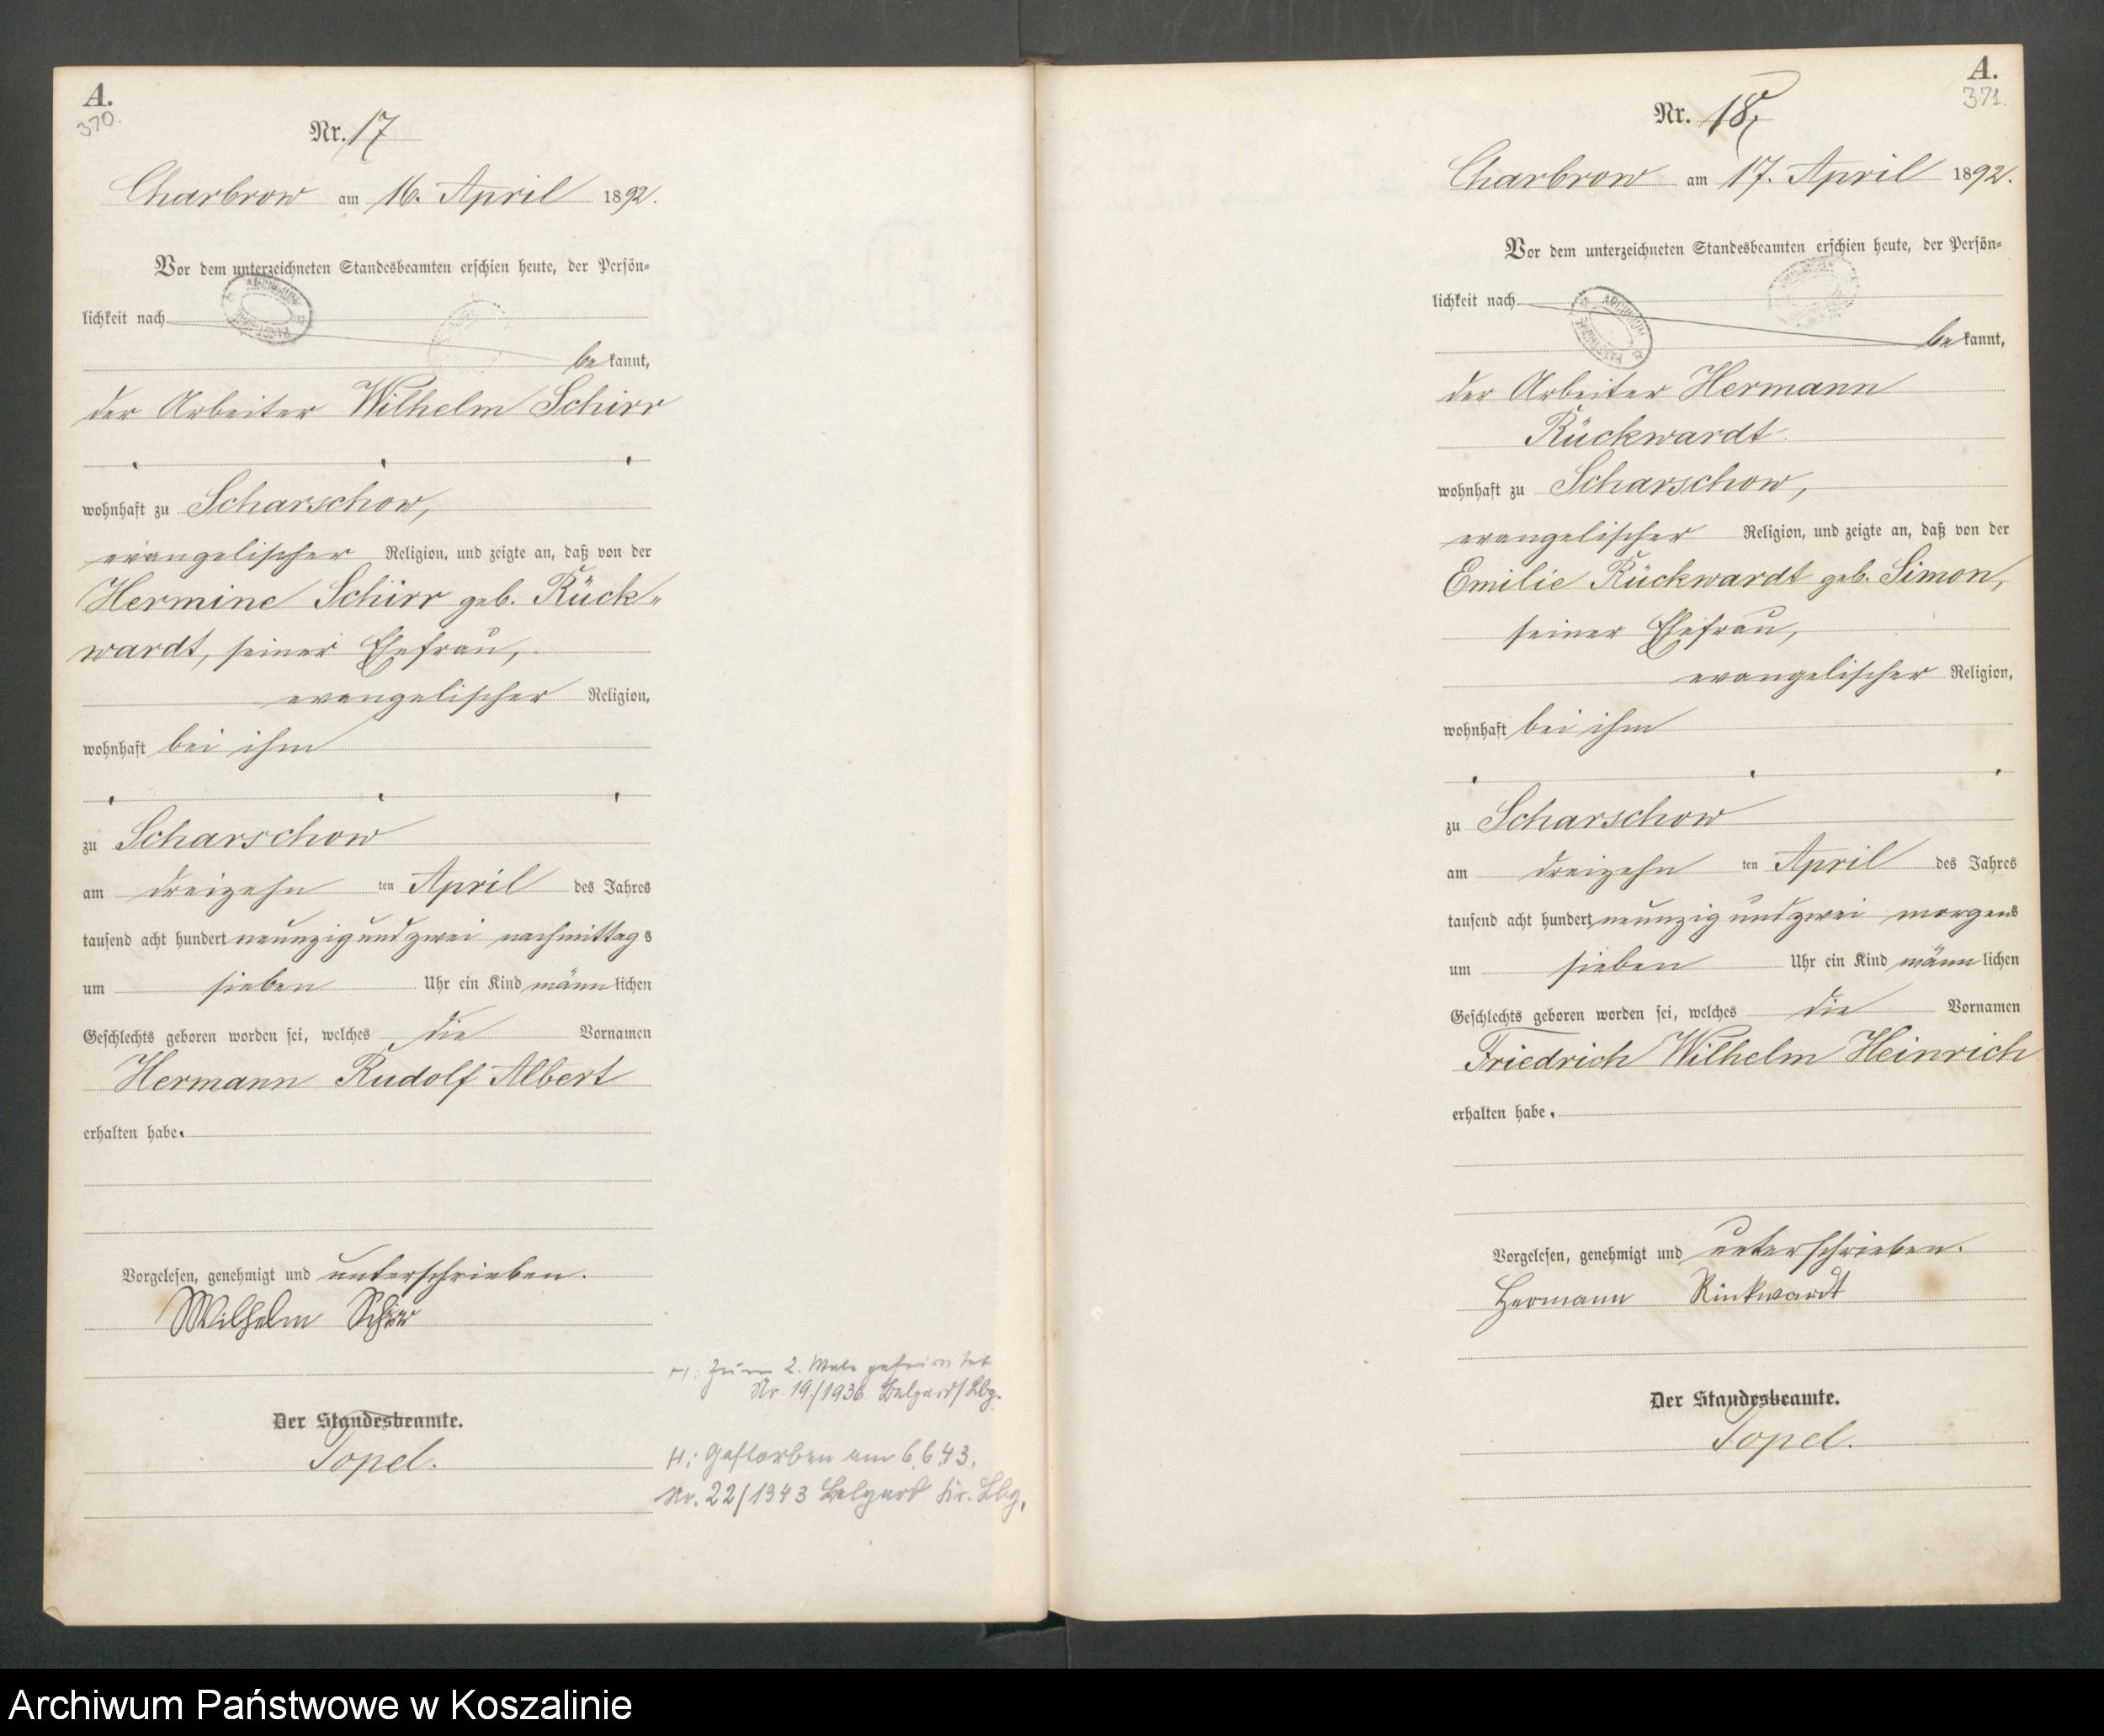 A.
370.
Nr. 17
Charbrow am 16. April 1892.
Vor dem unterzeichneten Standesbeamten erschien heute, der Persön-
lichkeit nach
bekannt,
der Arbeiter Wilhelm Schirr
wohnhaft zu Scharschow,
evangelischer Religion, und zeigte an, daß von der
Hermine Schirr geb. Rück-
wardt, seiner Ehefrau,
evangelischer Religion,
wohnhaft bei ihm
zu Scharschow
am dreizehn ten April des Jahres
tausend acht hundert neunzig und zwei nachmittags
um sieben Uhr ein Kind männlichen
Geschlechts geboren worden sei, welches die Vornamen
Hermann Rudolf Albert
erhalten habe.
Vorgelesen, genehmigt und unterschrieben.
Wilhelm Schirr
Der Standesbeamte.
Topel.
H: Zum 2. Male geheiratet
Nr. 19/1936 Belgard/Lbg.
H: Gestorben am 6.6.43.
Nr. 22/1943 Belgard Kr. Lbg.
A.
371.
Nr. 18,
Charbrow am 17. April 1892.
Vor dem unterzeichneten Standesbeamten erschien heute, der Persön-
lichkeit nach
bekannt,
der Arbeiter Hermann
Rückwardt
wohnhaft zu Scharschow,
evangelischer Religion, und zeigte an, daß von der
Emilie Rückwardt geb. Simon,
seiner Ehefrau,
evangelischer Religion,
wohnhaft bei ihm
zu Scharschow
am dreizehn ten April des Jahres
tausend acht hundert neunzig und zwei morgens
um sieben Uhr ein Kind männlichen
Geschlechts geboren worden sei, welches die Vornamen
Friedrich Wilhelm Heinrich
erhalten habe.
Vorgelesen, genehmigt und unterschrieben.
Hermann Rückwardt
Der Standesbeamte.
Topel.
Archiwum Państwowe w Koszalinie